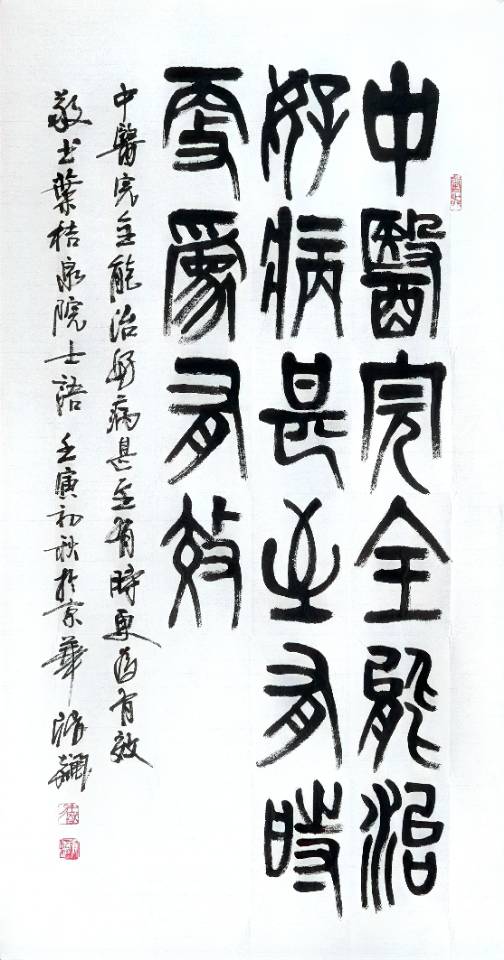 中醫完全能治
好病甚至有時
更為有效
中醫完全能治好病甚至有時更為有效
敬書葉桔泉院士語 壬寅初秋於京華